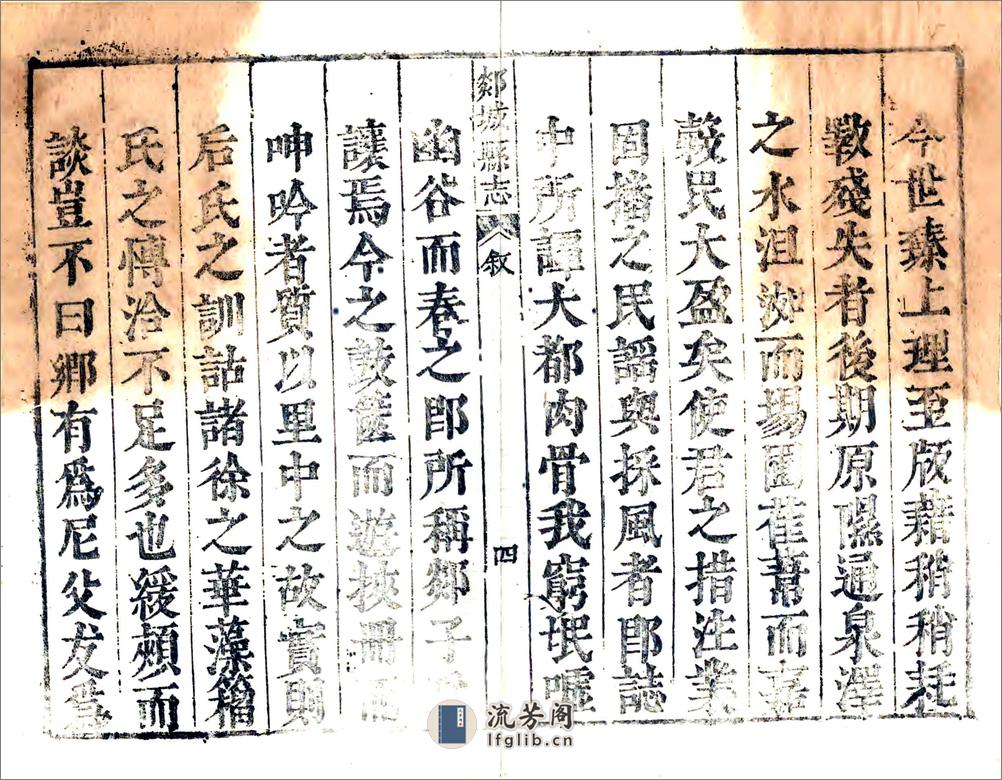 今世臻上理至版藉稍稍耗
斁殘失者後期原隰通泉澤
之水沮洳而場圃萑葦而嘉
穀民大盈矣使君之措注業
固播之民謡與採風者即誌
中所譚大都肉骨我窮氓噓
幽谷而春之即所稱郯子
讓焉今之鼓篋而遊挾冊而
呻吟者質以里中之故實則
后氏之訓詁諸徐之華藻籀
氏之慱洽不足多也緩頰而
談豈不曰鄉有為尼父友為
郯城縣志
敘
四
流芳阁
lfglib.cn